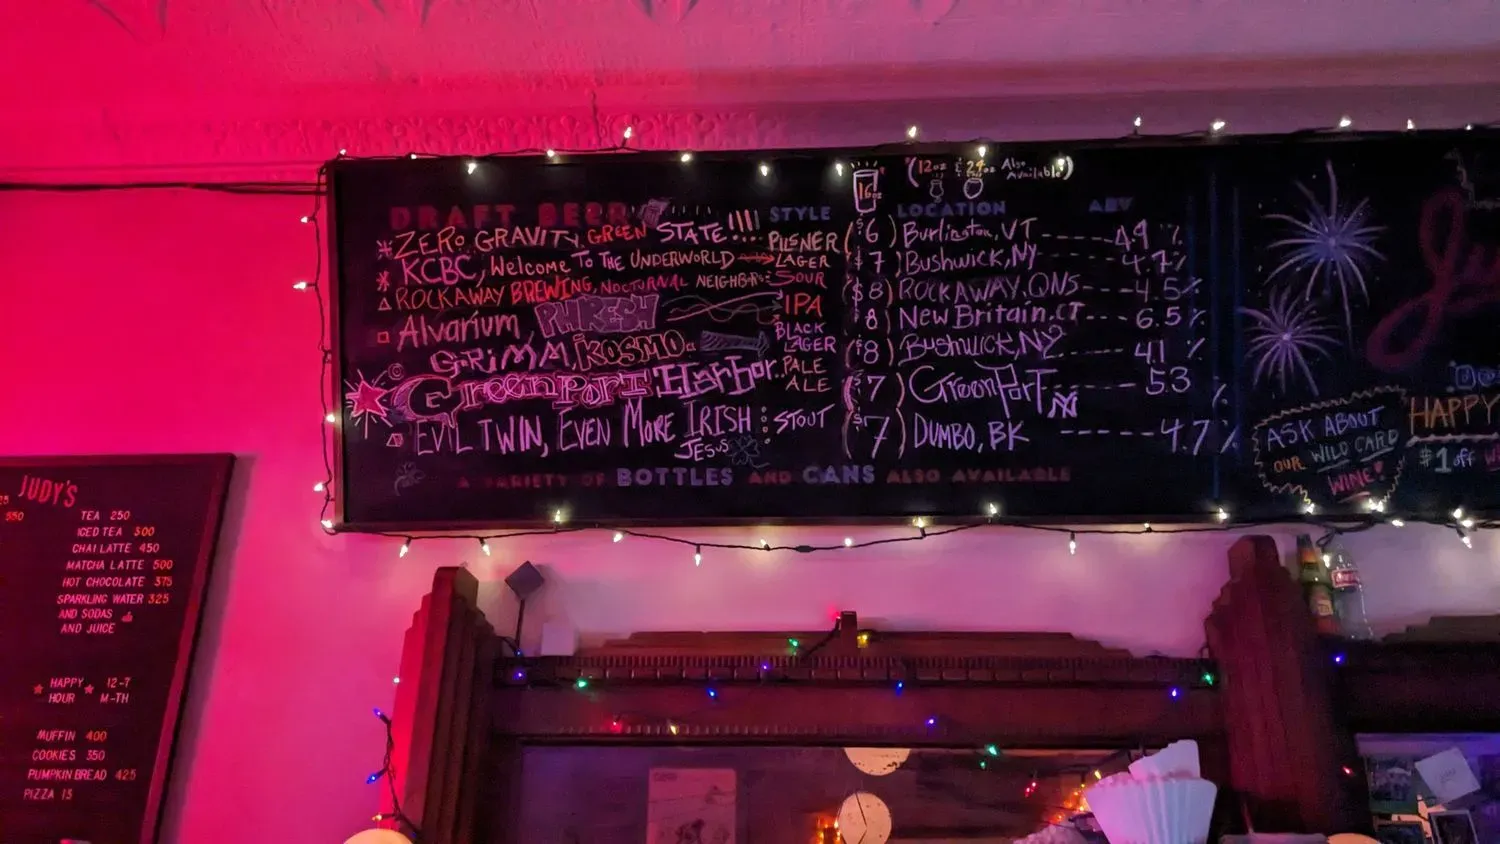 (12oz & 24oz Also Available)
16oz
DRAFT BEER STYLE LOCATION ABV
ZERO GRAVITY, GREEN STATE!!!! PILSNER ($6) Burlington, VT ------ 4.9 %
KCBC, Welcome To THE UNDERWORLD LAGER ($7) BUSHWICK, NY ------ 4.7%
ROCKAWAY BREWING, NOCTURNAL NEIGHBORS: SOUR ($8) ROCKAWAY, QNS --- 4.5%
Alvarium PHRESH IPA ($8) New Britain, CT ---- 6.5%
GRIMM, KOSMO BLACK LAGER ($8) BUSHWICK, NY ---- 4.1 %
GreenPort Harbor.. PALE ALE ($7) GreenPort, NY ------ 5.3 %
EVIL TWIN, EVEN MORE IRISH JESUS : STOUT ($7) DUMBO, BK ------ 4.7%
A VARIETY OF BOTTLES AND CANS ALSO AVAILABLE
ASK ABOUT
OUR WILD CARD
WINE!
HAPPY
$1 off
JUDY'S
25
550
TEA 250
ICED TEA 300
CHAI LATTE 450
MATCHA LATTE 500
HOT CHOCOLATE 375
SPARKLING WATER 325
AND SODAS
AND JUICE
HAPPY 12-7
HOUR M-TH
MUFFIN 400
COOKIES 350
PUMPKIN BREAD 425
PIZZA 13